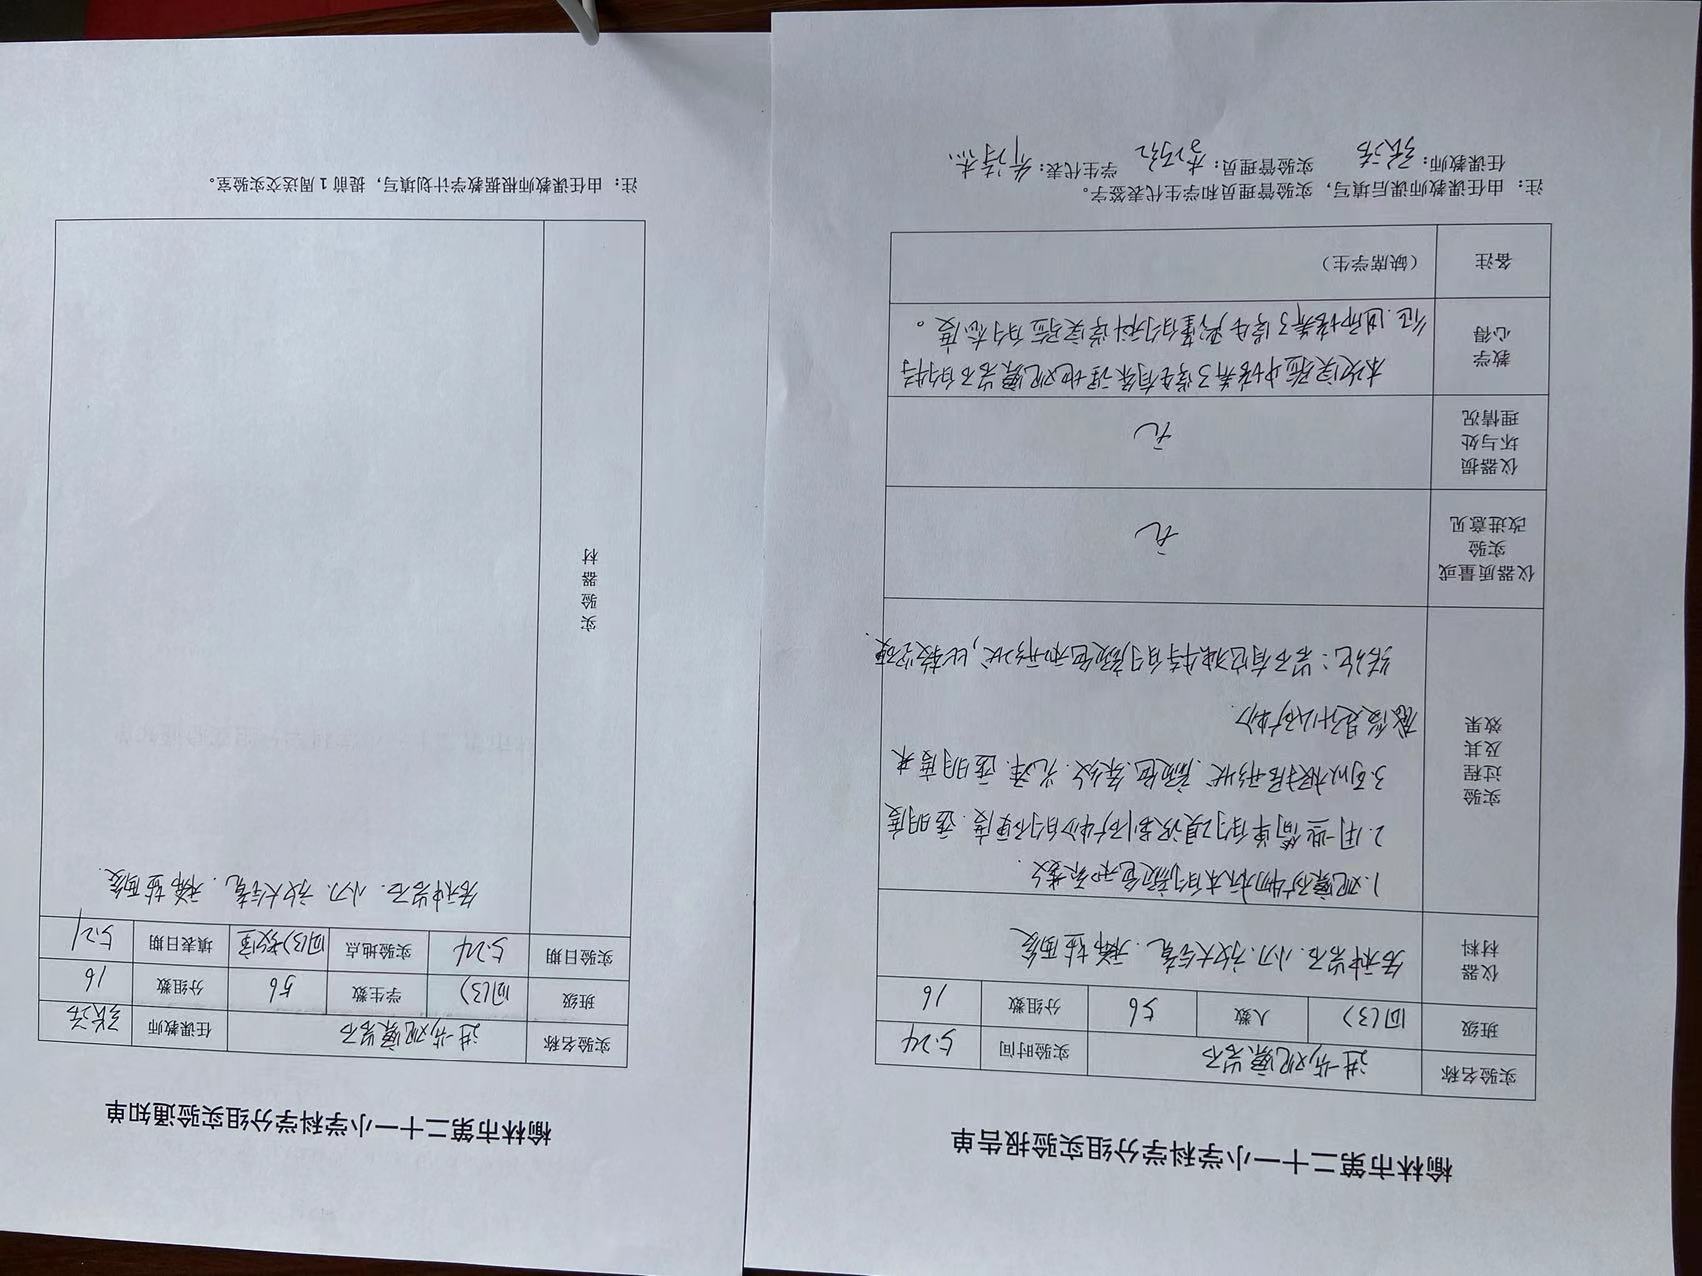 榆林市第二十一小学科学分组实验报告单
实验名称 进一步观察岩石 实验时间 5.24
班级 四(3) 人数 56 分组数 16
仪器材料 各种岩石.小刀.放大镜.稀盐酸
实验过程及其效果
1.观察矿物标本的颜色和条纹.
2.用一些简单的 识别矿物的硬度.透明度
3.可以根据形状.颜色.条纹.光泽.透明度来
是什么矿物.
结论:岩石有它独特的颜色和形状,比较坚硬.
仪器质量或实验改进意见 无
仪器损坏与处理情况 无
教学心得
本次实验中培养了学生有条理地观察岩石的特
征.进而培养了学生 的科学实验的态度。
备注 (缺席学生)
注: 由任课教师课后填写,实验管理员和学生代表签字。
任课教师: 张浩 实验管理员: 学生代表:
榆林市第二十一小学科学分组实验通知单
实验名称 进一步观察岩石 任课教师 张浩
班级 四(3) 学生数 56 分组数 16
实验日期 5.24 实验地点 四(3)教室 填表日期 5.21
实验器材
各种岩石.小刀.放大镜.稀盐酸.
注: 由任课教师根据教学计划填写,提前1周送交实验室。